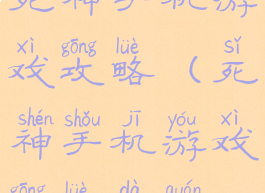 死神手机游
xì gōng lüè sǐ
戏攻略(死
shén shǒu jī yóu xì
神手机游戏
gōng lüè dà quán